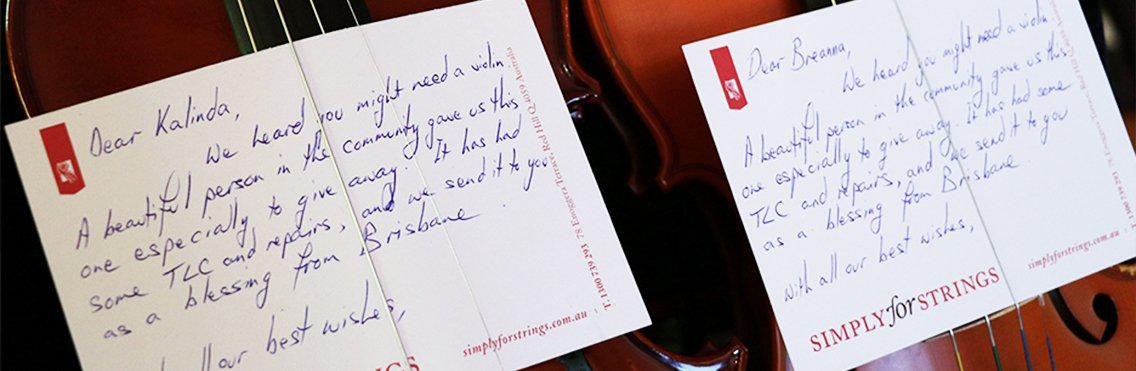 Dear Kalinda,
We heard you might need a violin.
A beautiful person in the community gave us this
one especially to give away. It has had
some TLC and repairs, and we send it to you
as a blessing from Brisbane.
all our best wishes,
GS
simplyforstrings.com.au
T: 1300 739 293 78 Enoggera Terrace, Red Hill Q 4059 Australia
Dear Breanna,
We heard you might need a violin.
A beautiful person in the community gave us this
one especially to give away. It has had some
TLC and repairs, and we send it to you
as a blessing from Brisbane.
With all our best wishes,
SIMPLYforSTRINGS
simplyforstrings.com.au
T: 1300 739 293 78 Enoggera Terrace, Red Hill